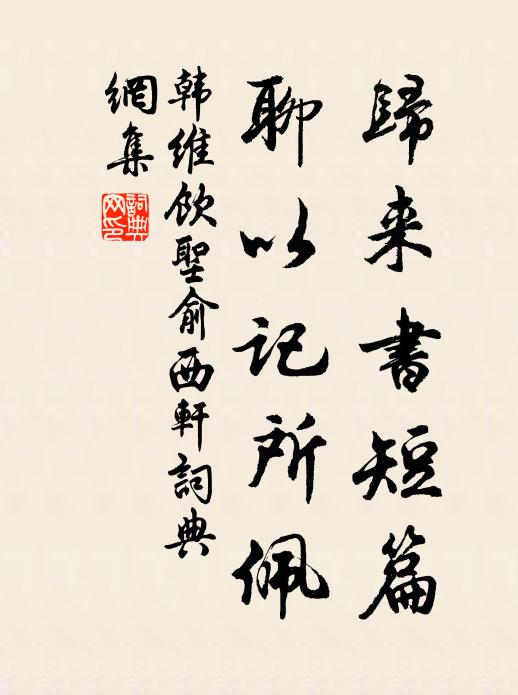 歸来書短篇
聊以記所佩
韩維飲聖俞西軒詞典
網集
詞典
网印